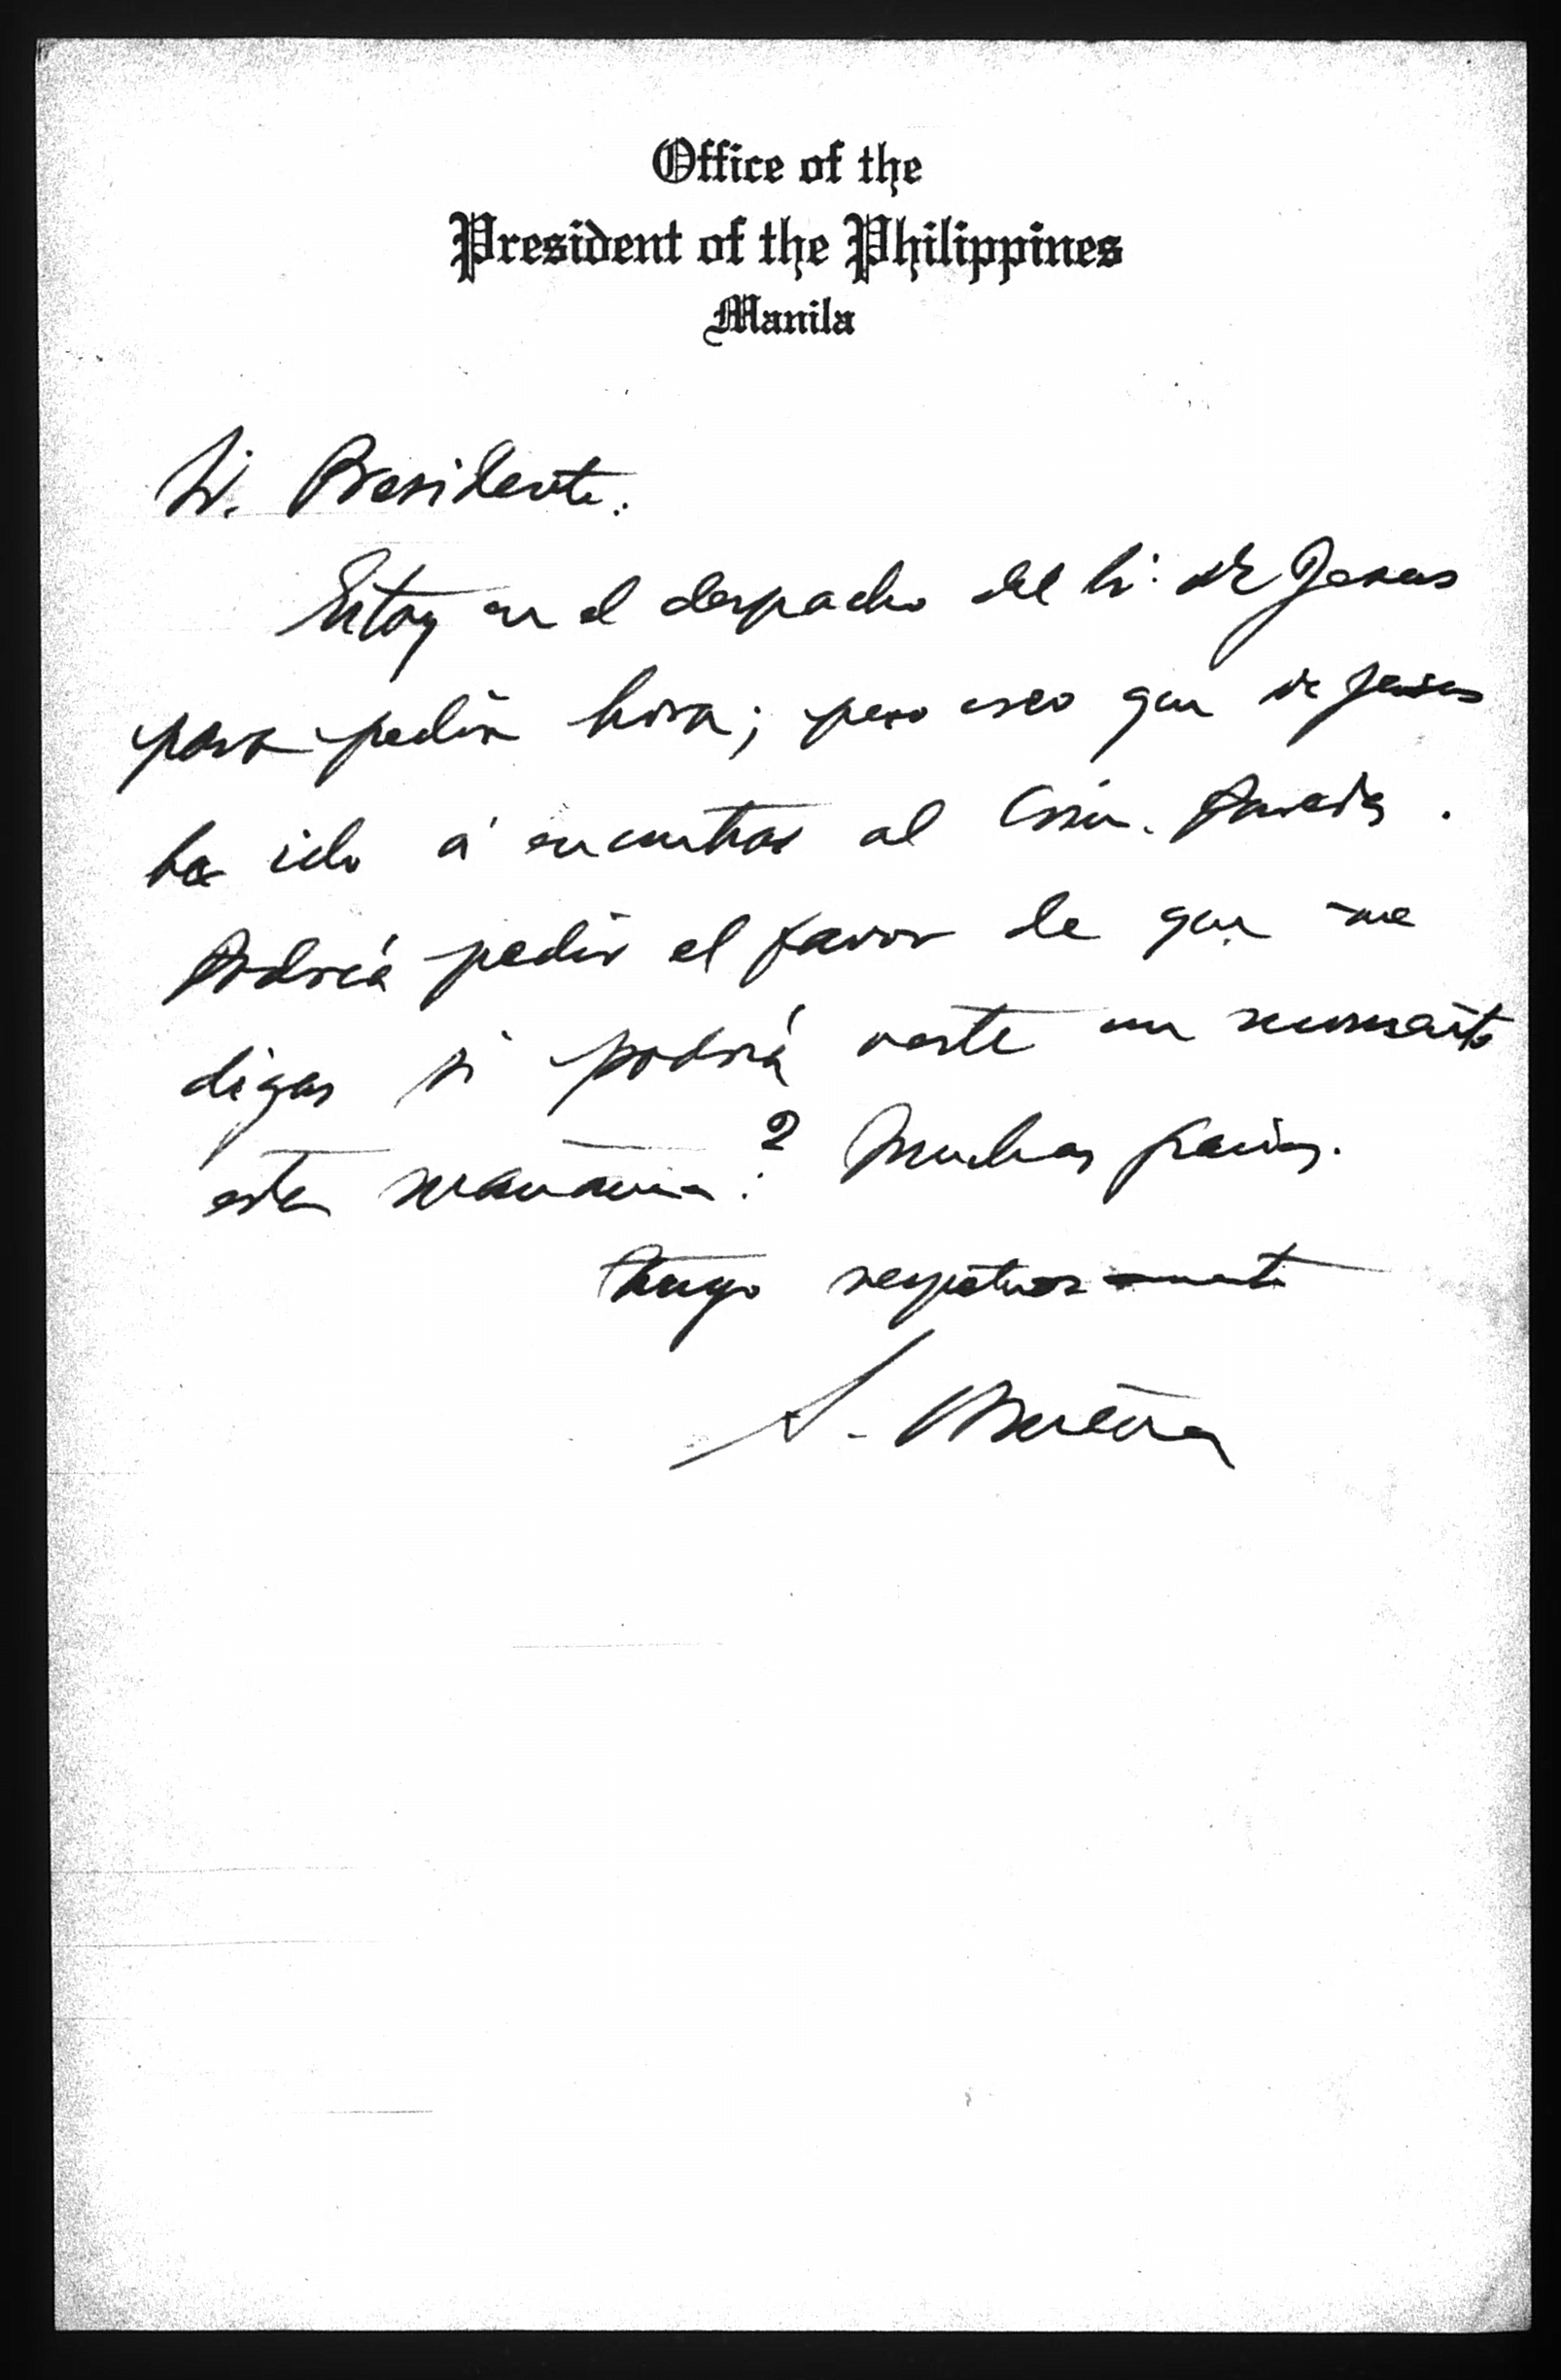 Office of the
President of the Philippines
Manila
Sr. Presidente:
Estoy en el despacho del Sr. de Jesus
para pedir hora; pero creo que de Jesus
ha ido á encontrar al Com. Paredes.
Podría pedir el favor de que me
digas si podría verte un momento
esta mañana? Muchas gracias.
Tuyo respetuosamente